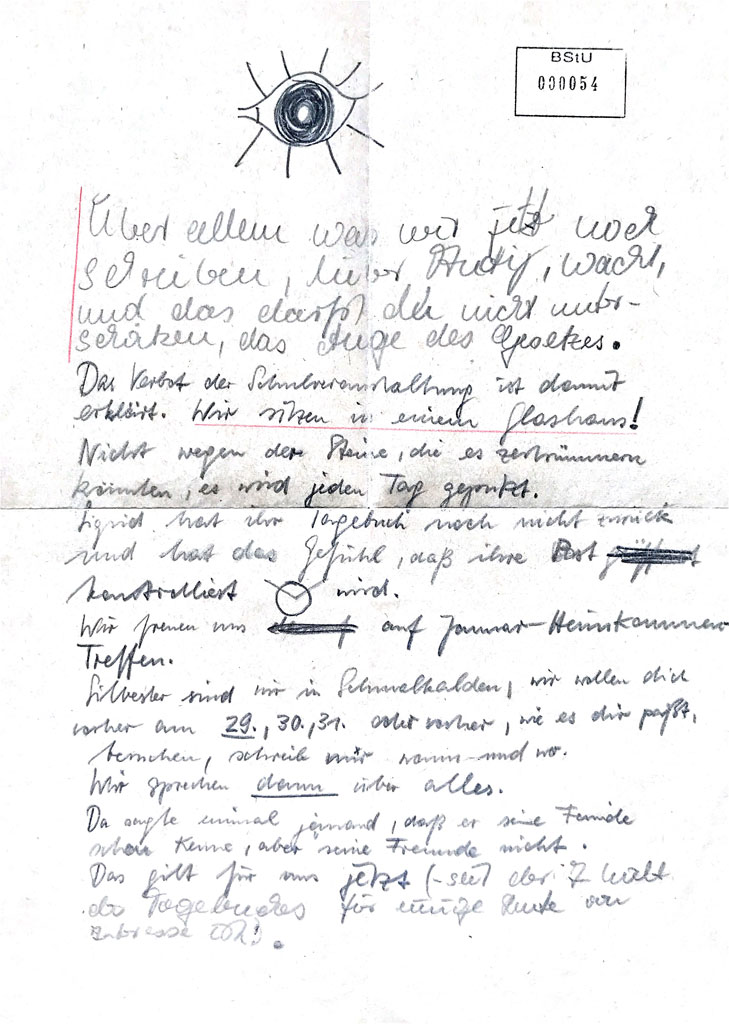 BStU
000054
Über allem was wir jetzt noch
schreiben, lieber Andy, wacht,
und das darfst du nicht unter-
schätzen, das Auge des Gesetzes.
Das Verbot der Schulveranstaltung ist damit
erklärt. Wir sitzen in einem Glashaus!
Nicht wegen der Steine, die es zertrümmern
könnten, es wird jeden Tag geputzt.
Sigrid hat ihr Tagebuch noch nicht zurück
und hat das Gefühl, daß ihre Post
kontrolliert wird.
Wir freuen uns auf Januar-Heimkommen-
Treffen.
Silvester sind wir in Schmalkalden, wir wollen dich
vorher am 29., 30., 31. oder vorher, wie es dir paßt,
besuchen, schreib mir wann und wo.
Wir sprechen dann über alles.
Da sagte einmal jemand, daß er seine Feinde
schon kenne, aber seine Freunde nicht.
Das gilt für uns jetzt (-seit der Inhalt
des Tagebuches für einige Leute von
Interesse ist)!.